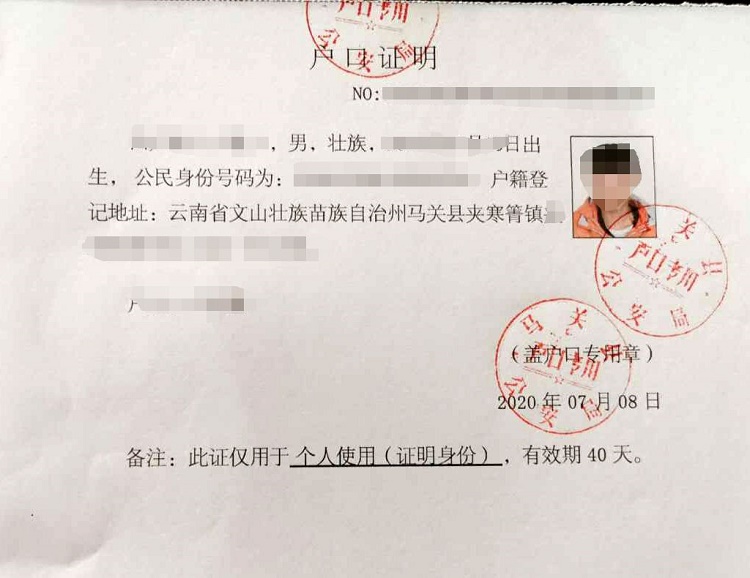 户口专用
公安局
户口证明
NO:
，男，壮族，
日出
生， 公民身份号码为：
户籍登
记地址：云南省文山壮族苗族自治州马关县夹寒箐镇
马关县
户口专用
公安局
马关县
户口专用
公安局
（盖户口专用章）
2020 年 07 月 08 日
备注：此证仅用于 个人使用（证明身份） ，有效期 40 天。